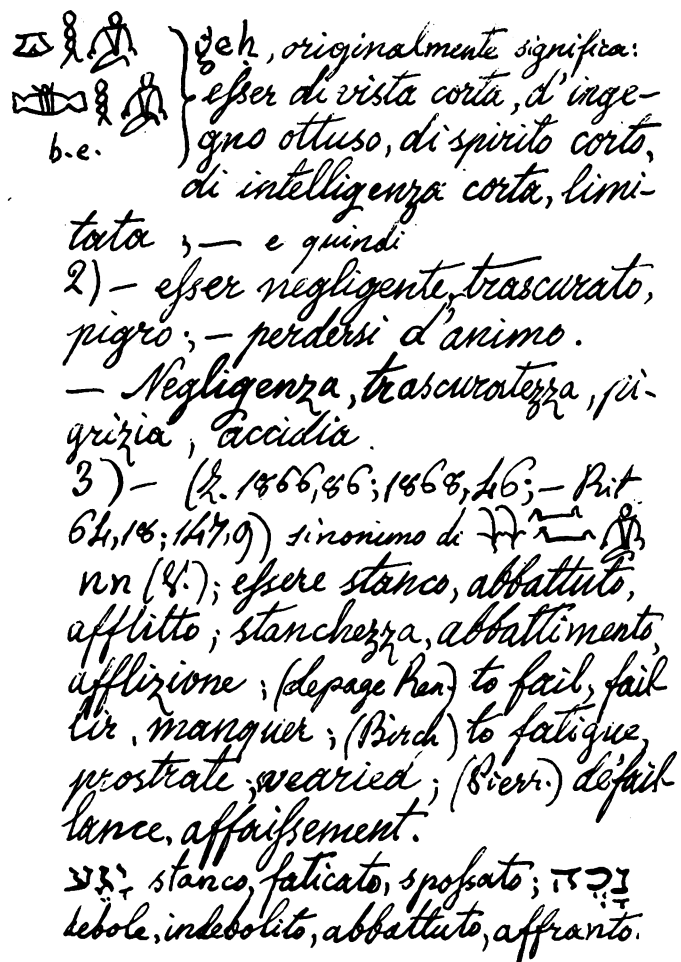 g̣eh, originalmente significa:
esser di vista corta, d'inge-
b.e. gno ottuso, di spirito corto,
di intelligenza corta, limi-
tata ; — e quindi
2) — esser negligente, trascurato,
pigro; — perdersi d'animo.
— Negligenza, trascuratezza, pi-
grizia, accidia.
3) — (Z. 1866,86; 1868,46; — Rit
64,18; 147,9) sinonimo di
nn (V.); essere stanco, abbattuto,
afflitto; stanchezza, abbattimento,
afflizione; (lepage Ren.) to fail, fail-
lir, manquer; (Birch) to fatigue,
prostrate, wearied; (Pierr.) défail-
lance, affaissement.
יָגֵעַ stanco, faticato, spossato; נָכֵה
debole, indebolito, abbattuto, affranto.